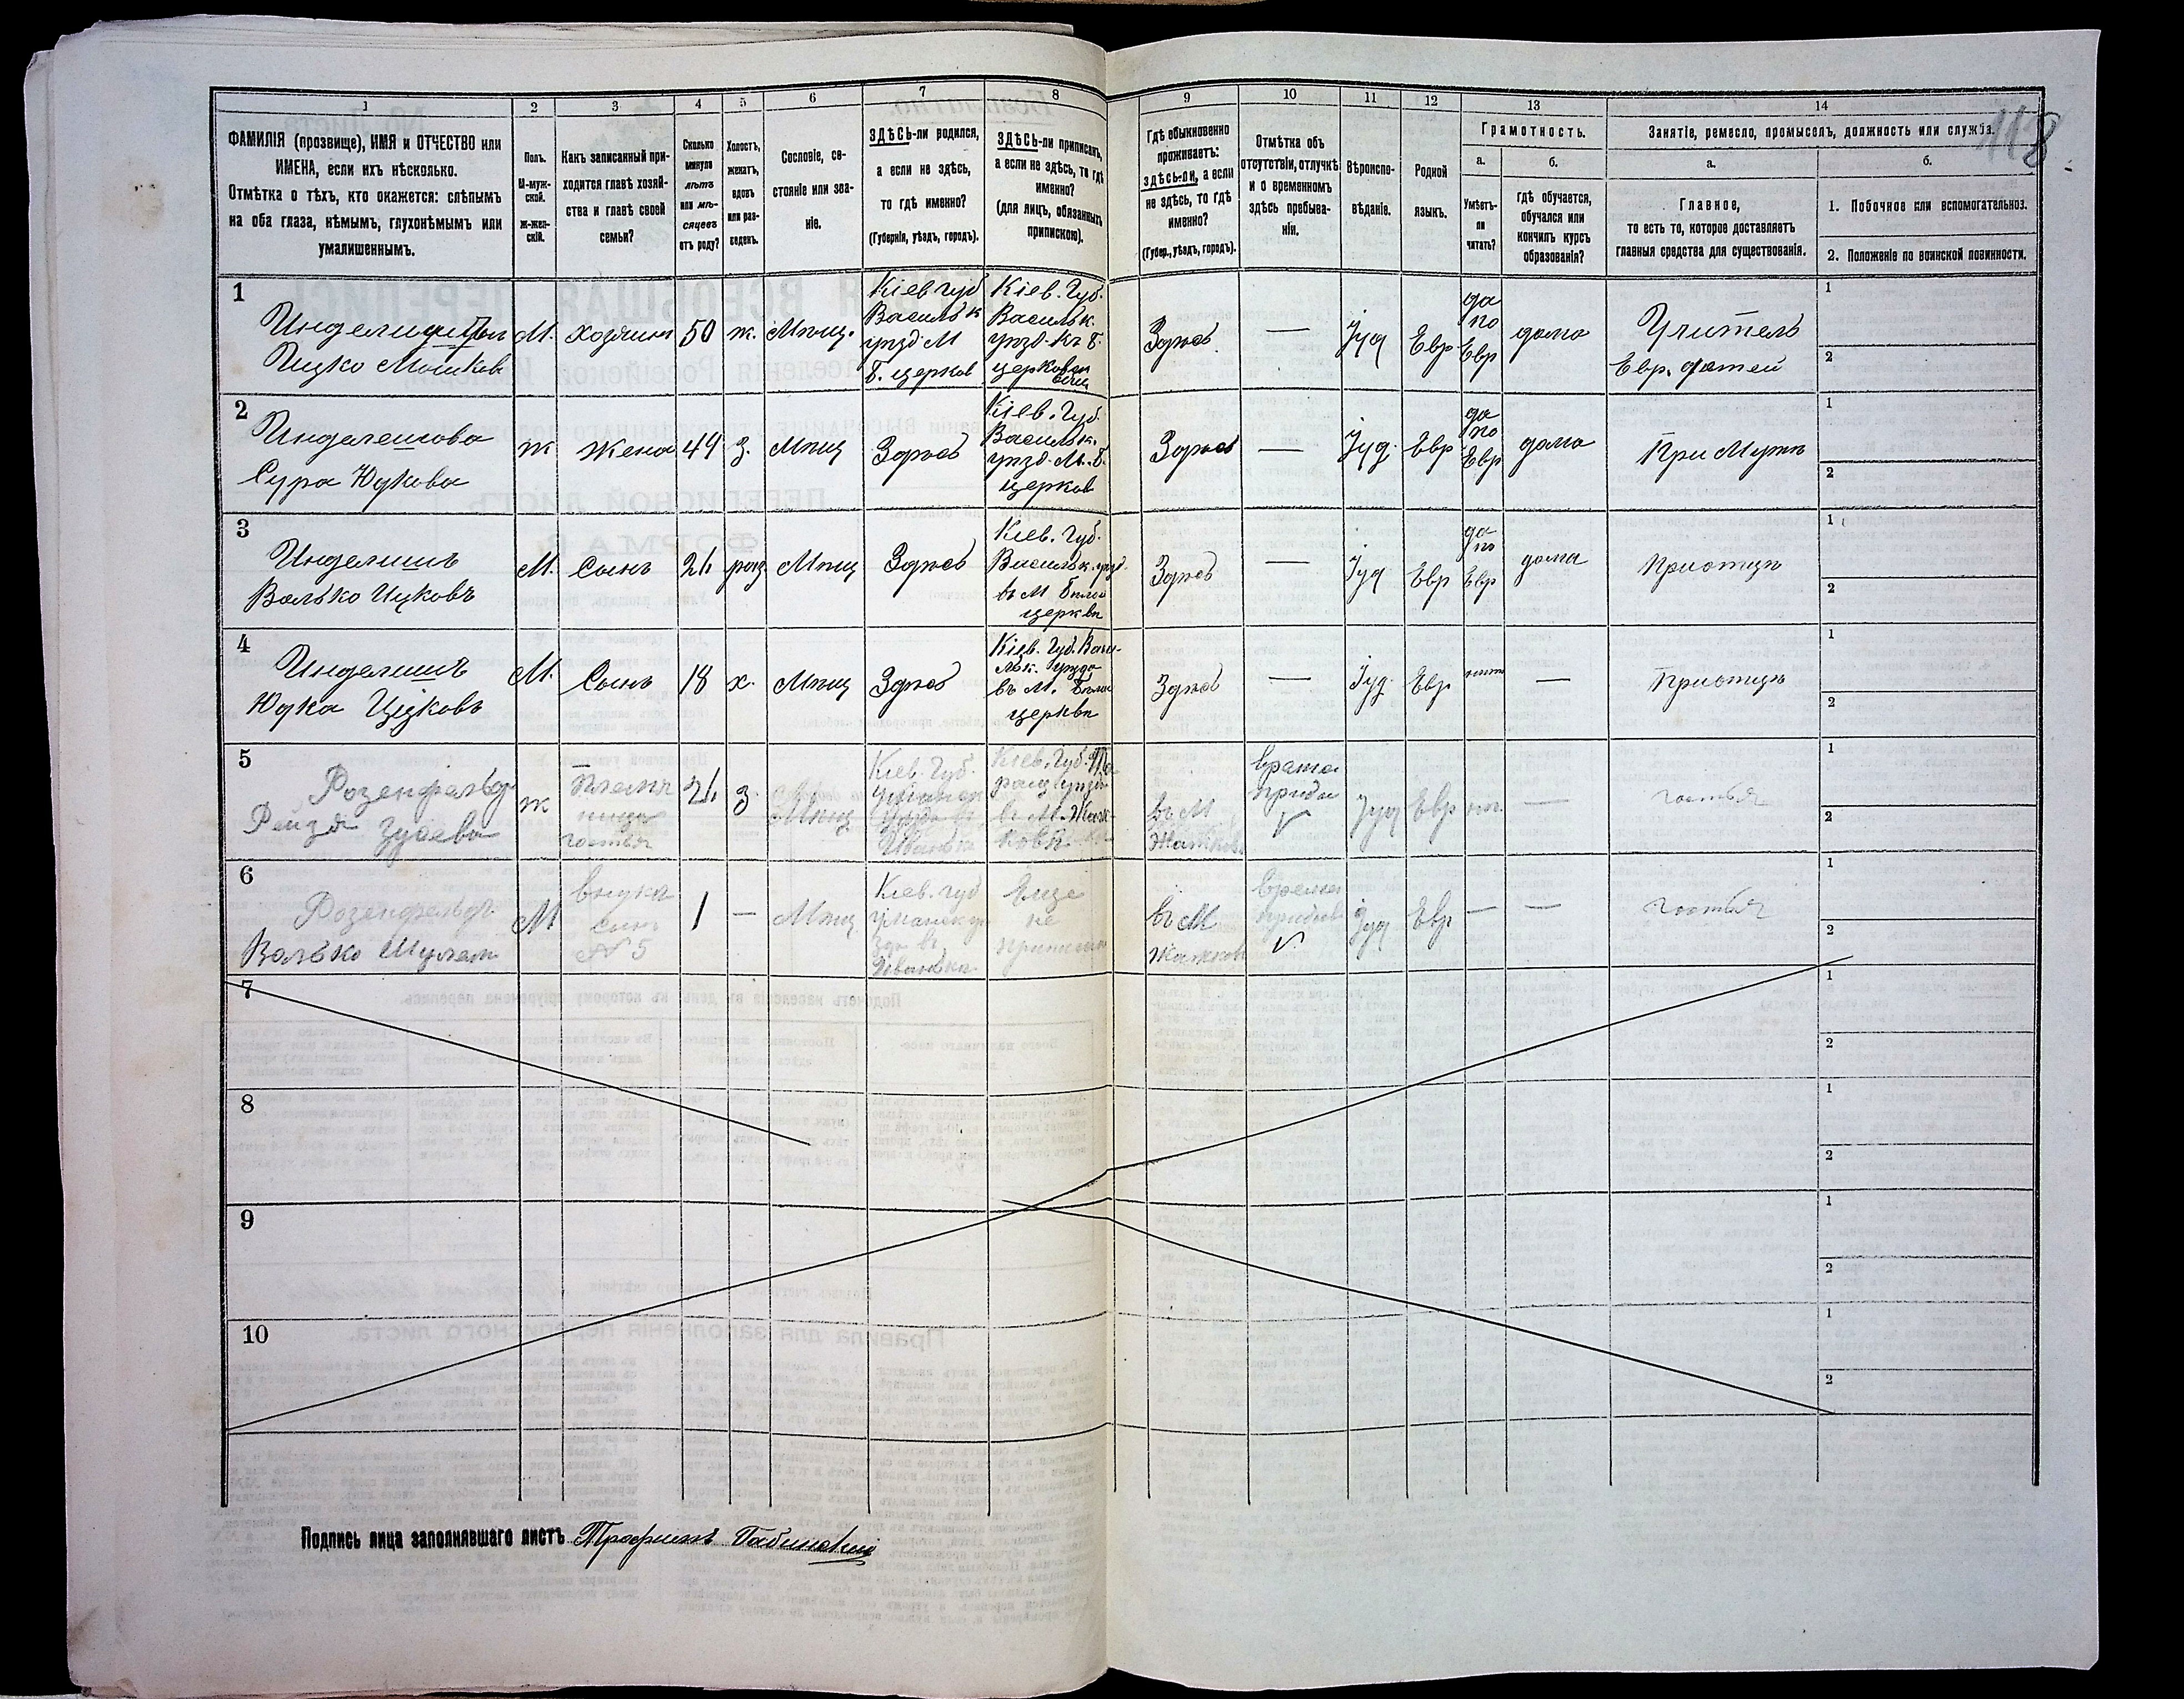 118
1 2 3 4 5 6 7 8 9 10 11 12 13 14
ФАМИЛІЯ (прозвище), ИМЯ и ОТЧЕСТВО или
ИМЕНА, если ихъ нѣсколько.
Отмѣтка о тѣхъ, кто окажется: слѣпымъ
на оба глаза, нѣмымъ, глухонѣмымъ или
умалишеннымъ.
Полъ.
М-муж-
ской.
Ж-жен-
скій.
Какъ записанный при-
ходится главѣ хозяй-
ства и главѣ своей
семьи?
Сколько
минуло
лѣтъ
или мѣ-
сяцевъ
отъ роду?
Холостъ,
женатъ,
вдовъ
или раз-
веденъ.
Сословіе, со-
стояніе или зва-
ніе.
ЗДѢСЬ-ли родился,
а если не здѣсь,
то гдѣ именно?
(Губернія, уѣздъ, городъ).
ЗДѢСЬ-ли приписанъ,
а если не здѣсь, то гдѣ
именно?
(для лицъ, обязанныхъ
припискою).
Гдѣ обыкновенно
проживаетъ:
здѣсь-ли, а если
не здѣсь, то гдѣ
именно?
(Губер., уѣздъ, городъ).
Отмѣтка объ
отсутствіи, отлучкѣ
и о временномъ
здѣсь пребыва-
ніи.
Вѣроиспо-
вѣданіе.
Родной
языкъ.
Грамотность.
а.
Умѣетъ-
ли
читать?
б.
гдѣ обучается,
обучался или
кончилъ курсъ
образованія?
Занятіе, ремесло, промыселъ, должность или служба.
а.
Главное,
то есть то, которое доставляетъ
главныя средства для существованія.
б.
1. Побочное или вспомогательное.
2. Положеніе по воинской повинности.
1
Ицко Мошков
М.
хозяин
50
ж.
Мѣщ.
Кіев губ
Васильк
уѣзд. М
Б. церков
Кіев. Губ.
Васильк.
уѣзд. Къ Б.
Здѣсь
—
Іуд
Евр
да
по
Евр
дома
Учитель
Евр. детей
1
2
2
Инделешова
Сура Юдкова
ж
Жена
44
з.
Мѣщ
Здѣсь
Кіев. Губ.
Васильк.
уѣзд. М. Б.
церков
Здѣсь
—
Іуд.
Евр
да
по
Евр
дома
При Мужѣ
1
2
3
Инделишъ
Валько Ицковъ
М.
Сынъ
21
раз
Мѣщ
Здѣсь
Кіев. Губ.
Васильк. уѣзд.
въ М Бѣлой
церкви
Здѣсь
—
Іуд
Евр
да
по
Евр
дома
При отцѣ
1
2
4
Инделишъ
Юдка Іцковъ
М.
Сынъ
18
х.
Мѣщ
Здѣсь
Кіев. Губ. Васи-
льк. уѣзда
въ М. Бѣлой
церкви
Здѣсь
—
Іуд.
Евр
нѣт
—
При отцѣ
1
2
5
Розенфельд
Рейзя Зусева
ж
Племя
ница
гостья
21
з
Мѣщ
Кіев. Губ.
Уманск
Иваньк
Кіев. Губ. Та
ращ уѣзда
в М. Жаш
ковѣ
въ М
Жашков
врема
прибы
Іуд
Евр
нѣт
—
гостья
1
2
6
Розенфельдъ
Валько Шулем
М
внукъ
сын
№ 5
1
—
Мѣщ
Кіев. губ
Уманск уѣ
зда въ
Иванька
Еще
не
приписан
въ М
Жашков
времен
прибыв
Іуд
Евр
—
—
гостья
1
2
7
1
2
8
1
2
9
1
2
10
1
2
Подпись лица заполнявшаго листъ Трофимъ Бабинскій